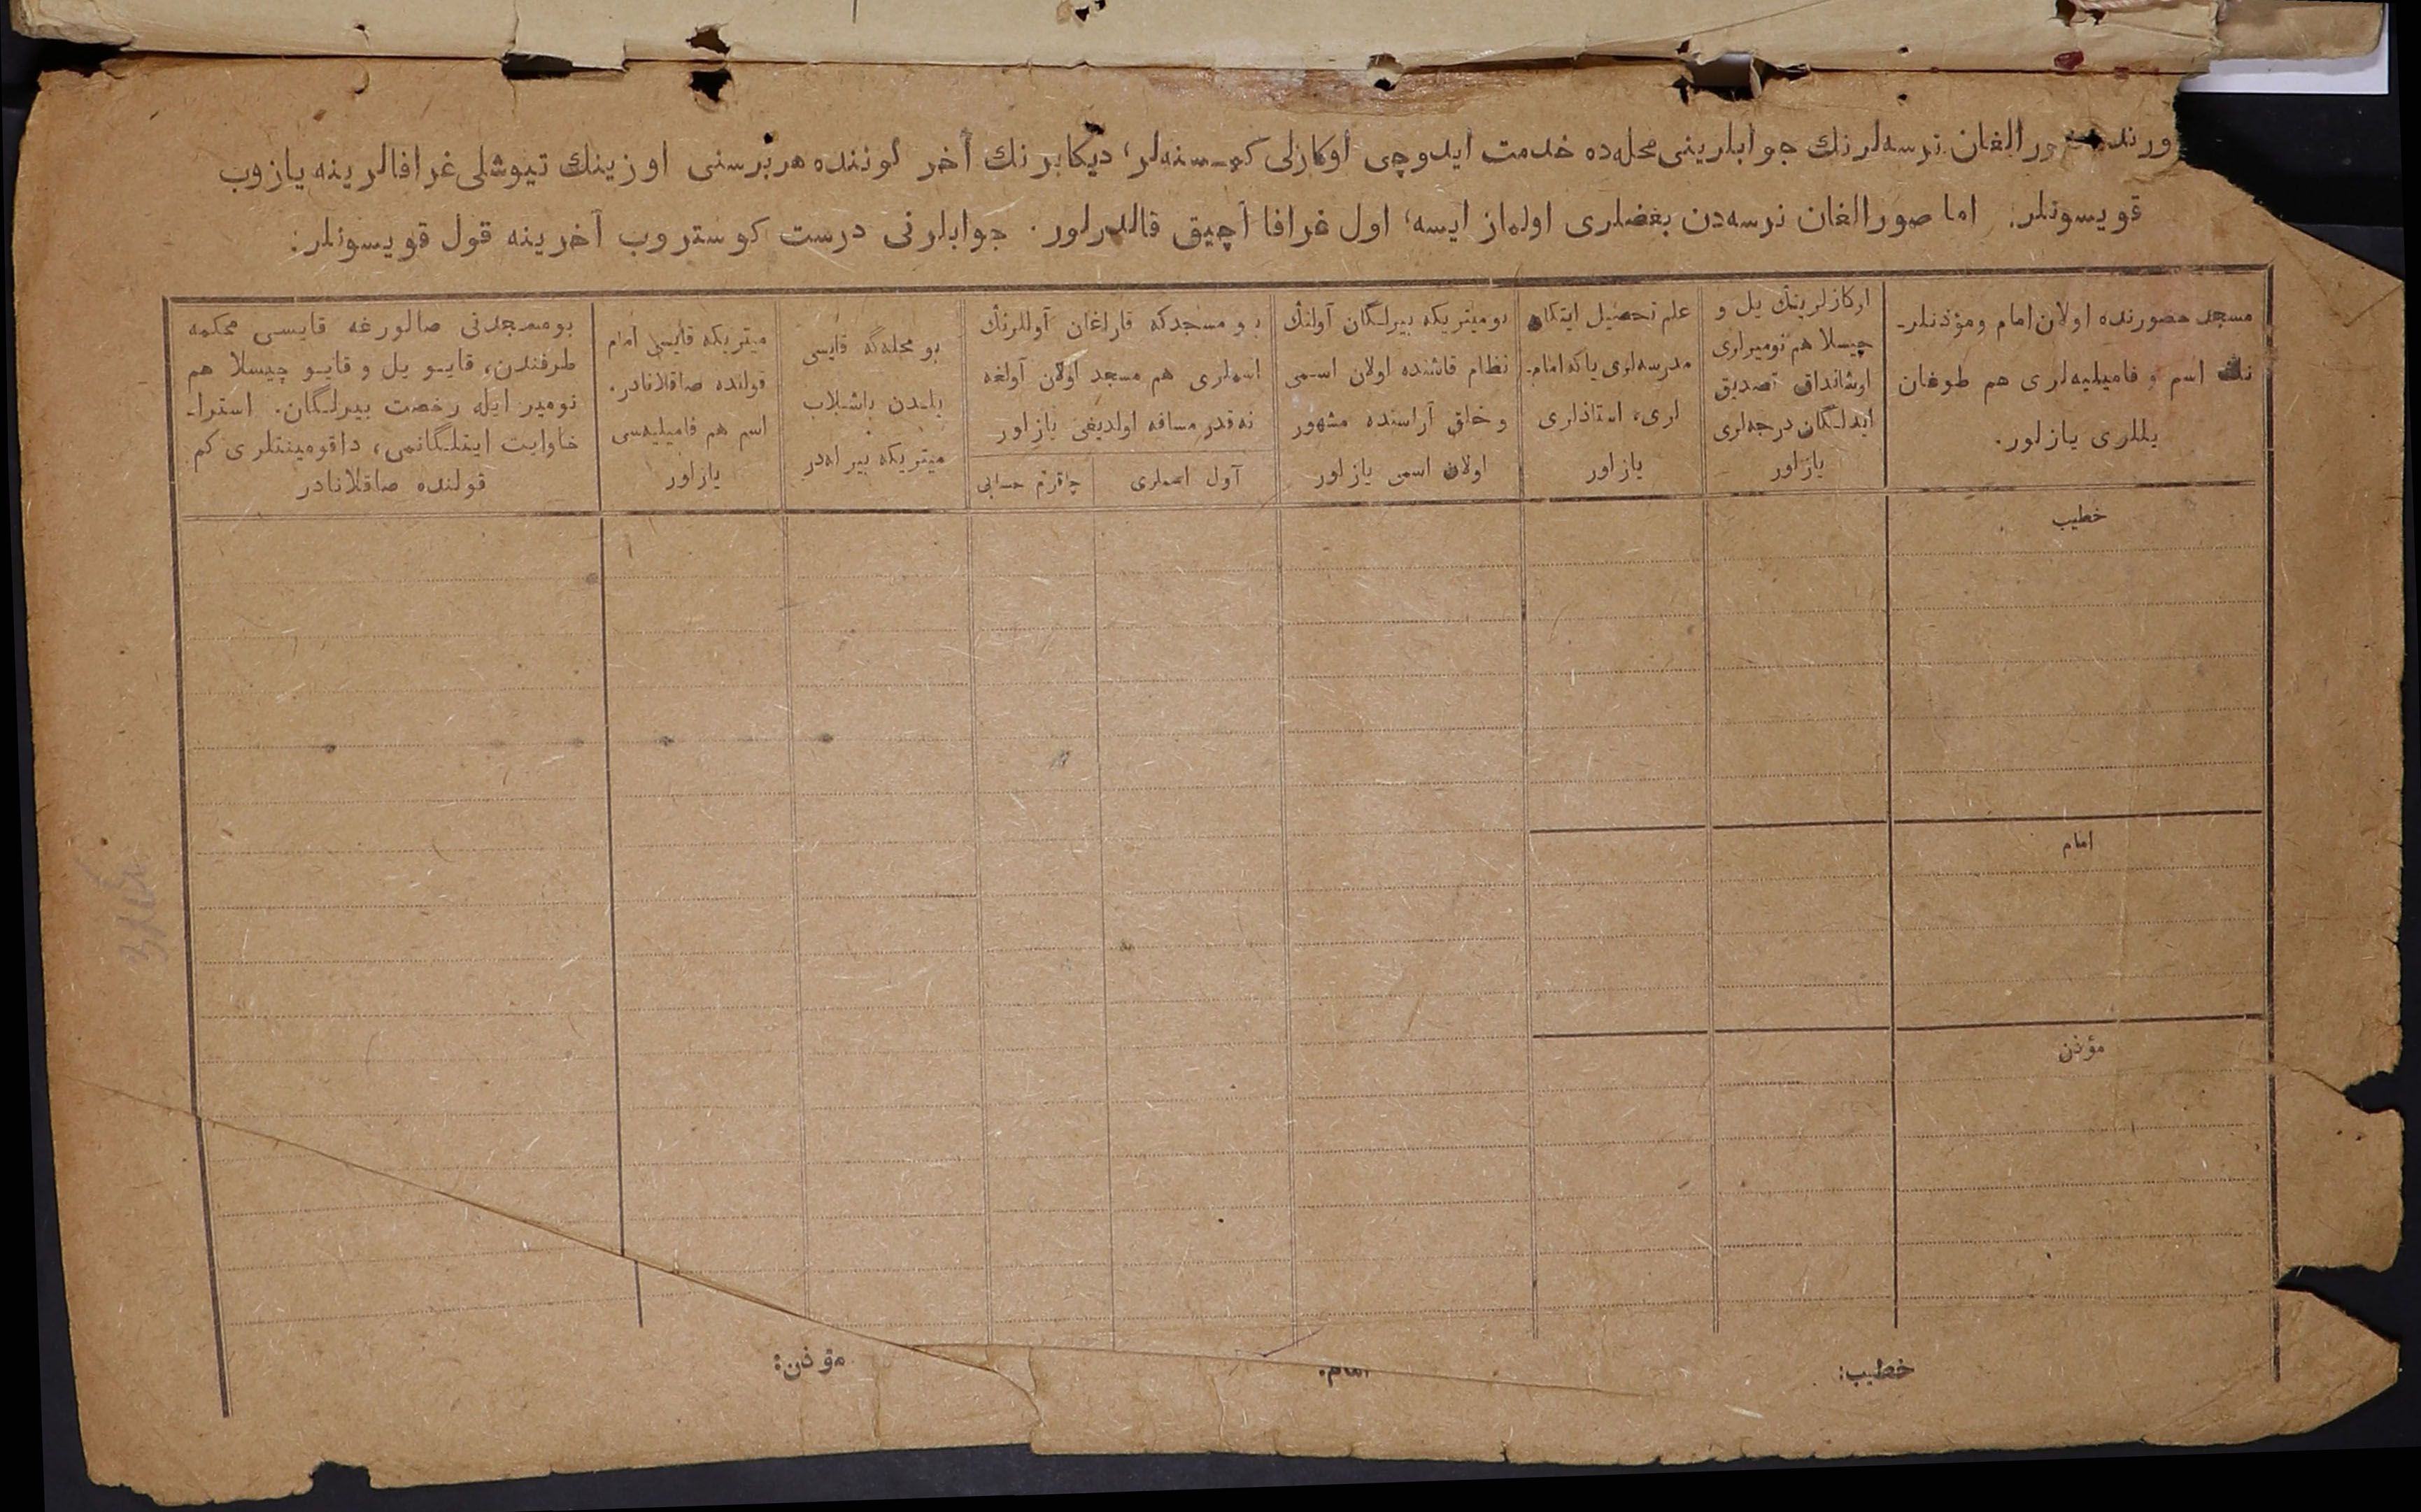 صورالغان نرسه‌لرنك جوابلرینی محله‌ده خدمت ایدوچی اوكازلی كمسنه‌لر، دیكابر نك آخر كوننده هر برسنی اوزینك تیوشلی غرافالرینه یازوب
قویسونلر. اما صورالغان نرسه‌دن بعضلری اولماز ایسه؛ اول غرافا آچیق قالدرلور. جوابلرنی درست كوستروب آخرینه قول قویسونلر:
مسجد حضورنده اولان امام ومؤذنلر-
نك اسم و فامیلیه‌لری هم طوغان
یللری یازلور.
اوكازلرینك یل و
چیسلا هم نومیرلری
اوشانداق تصدیق
ایدلگان درجه‌لری
یازلور
علم تحصیل ایتكان
مدرسه‌لری یاكه امام-
لری، استاذلری
یازلور
بو میتریكه بیرلگان آولنك
نظام قاشنده اولان اسمی
و خلق آراسنده مشهور
اولان اسمی یازلور
بو مسجدكه قاراغان آوللرنك
اسملری هم مسجد اولان آولغه
نه قدر مسافه اولدیغی یازلور
آول اسملری
چاقرم حسابی
بو محله‌گه قایسی
یلدن باشلاب
میتریكه بیرله‌در
میتریكه قایسی امام
قولنده صاقلانادر.
اسم هم فامیلیه‌سی
یازلور
بو مسجدنی صالورغه قایسی محكمه
طرفندن، قایو یل و قایو چیسلا هم
نومیر ایله رخصت بیرلگان. استرا-
خاوایت ایتلگانمی، داقومینتلری كم
قولنده صاقلانادر
خطیب
امام
مؤذن
خطیب:
امام:
مؤذن: